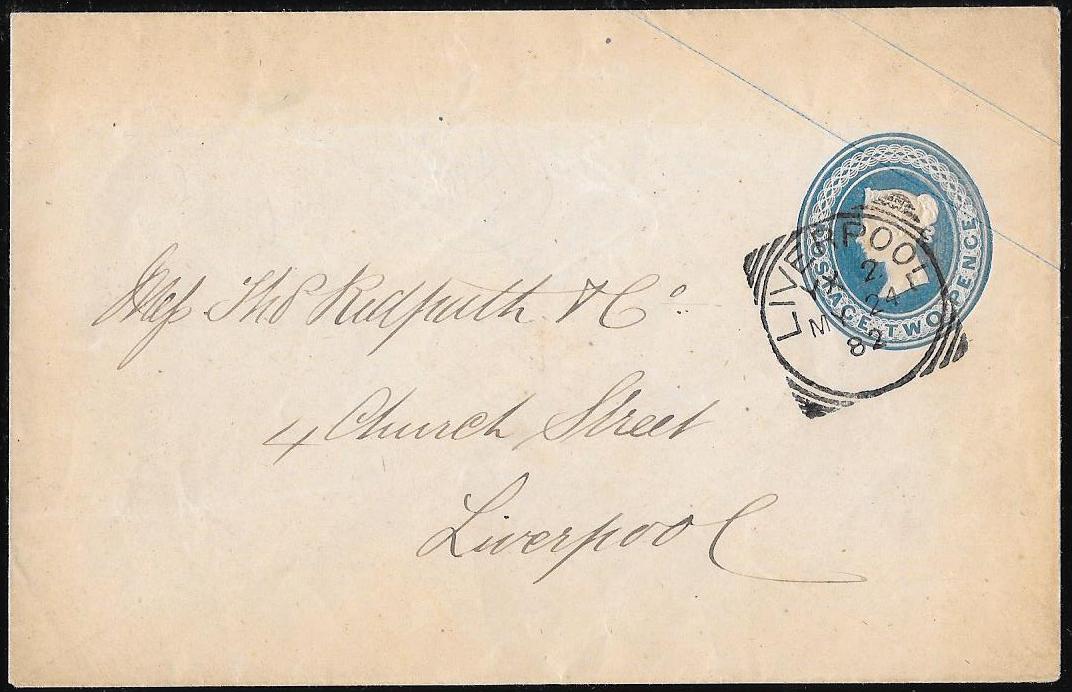 POSTAGE TWO PENCE
LIVERPOOL
2
X
MR 24
82
Thos Redpath & Co
4 Church Street
Liverpool